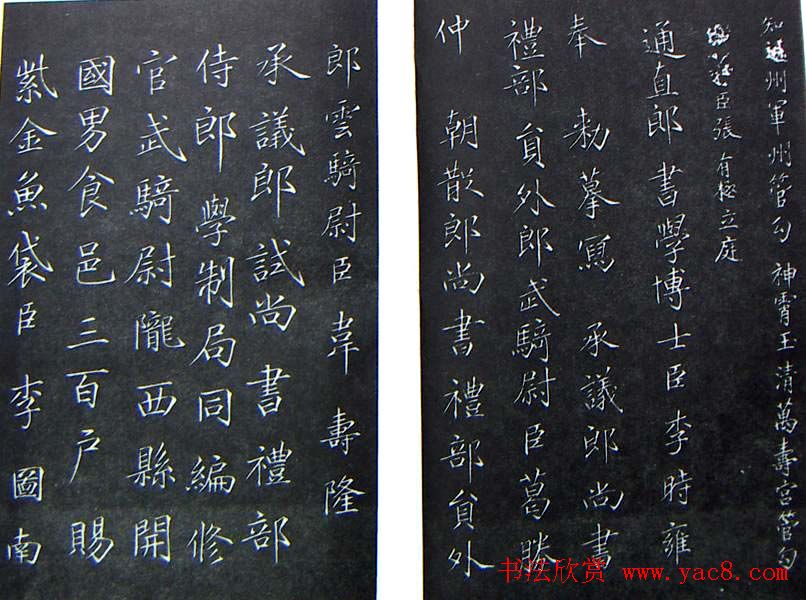 知 州軍州管勾神霄玉清萬壽宮管勾
臣張有極立庭
通直郎書學博士臣李時雍
奉勑摹寫承議郎尚書
禮部員外郎武騎尉臣葛勝
仲朝散郎尚書禮部員外
郎雲騎尉臣韋壽隆
承議郎試尚書禮部
侍郎學制局同編修
官武騎尉隴西縣開
國男食邑三百戶賜
紫金魚袋臣李圖南
书法欣赏 www.yac8.com